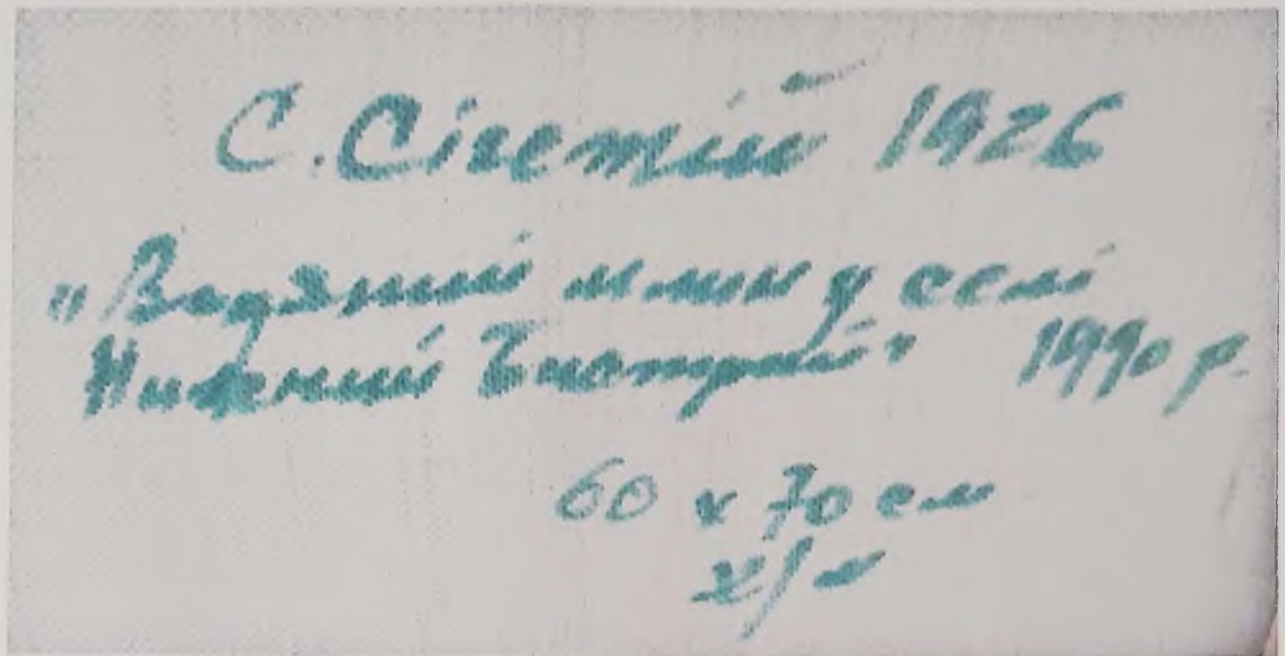 С. Сігетій 1926
„Водяний млин у селі
Нижній Бистрий" 1990 р.
60 х 70 см
х/м